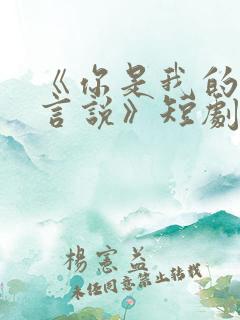 《你是我的
言說》短劇
楊憲益
未经同意禁止转载